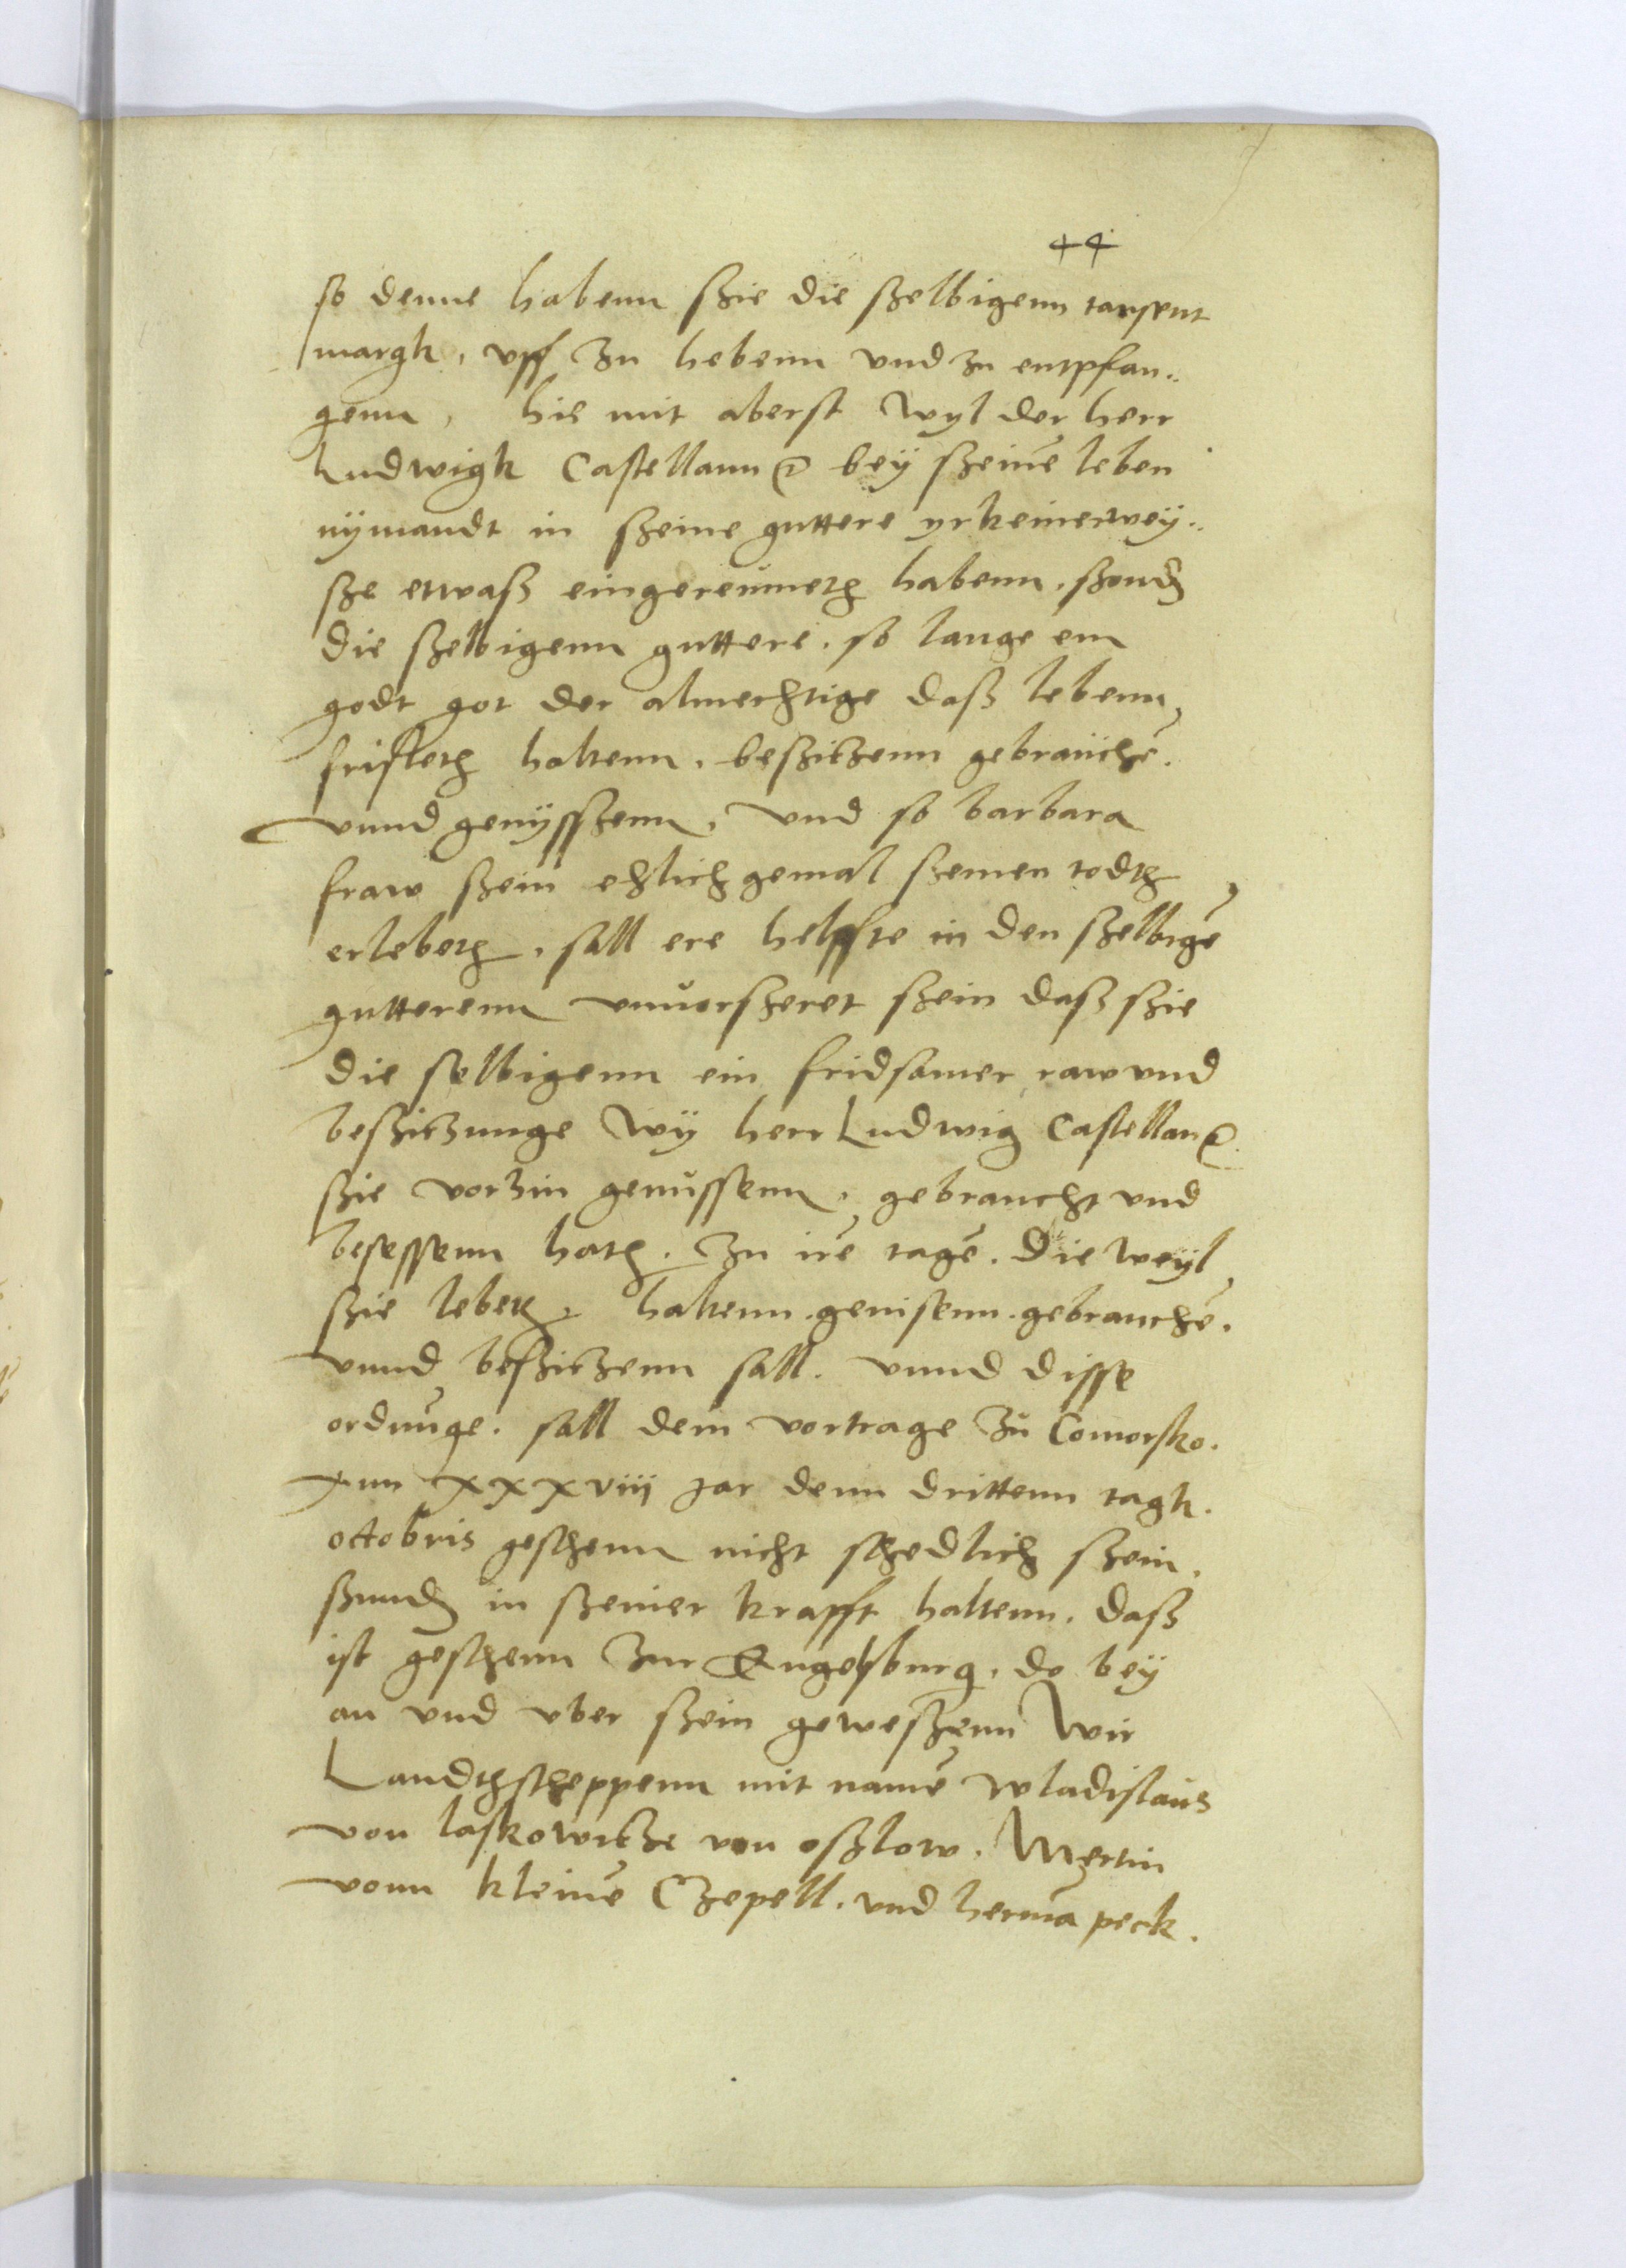 44
so denne habenn szie die szelbigenn tausent
margk, uff zu hebenn und zu entpfan..
genn, hie mit aberst wyl der herr
Ludwigk Castellann bey szeinē leben
nÿmandt in szeine guttere yrkeinerweÿ..
sze etwasz eingereumeth habenn. szond
die szelbigenn guttere. so lange em
godt got der almechtige dasz lebenn
fristeth haltenn. beszitzenn gebrauchē.
vnnd genÿsszenn, vnd so barbara
fraw szein ehlich gemal szeinen todth
erlebeth, sall ere helffte in den szelbigē
gutterenn vnuorszeret szein dasz szie
die selbigenn ein fridsamer raw vnd
beszitzunge wÿ herr Ludwig Castellan
szie vorhin genussenn, gebraucht vnd
besessenn hath. zu irē tagē. die weÿl
szie lebeth, haltenn. genisenn. gebrauchē.
vnnd beszitzenn sall. vnnd disse
ordnūge. sall dem vortrage zu Comorsko.
xvn xxxviii jar denn drittenn tagk.
octobris geschenn nicht schedlich szein.
szund in szeiner krafft haltenn. dasz
ist geschenn zur Engelsburg. do beÿ
an vnd vber szein geweszenn wir
Landthscheppenn mit namē wladislaus
von laskowitze von oszlow. Mertin
vonn kleinē Czepell. vnd hermā peck.